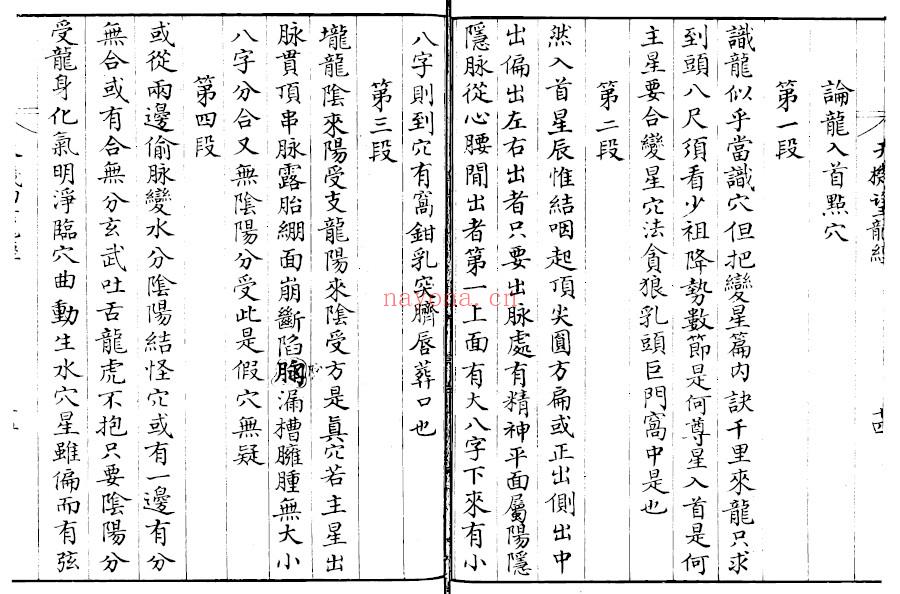 論龍入首點穴
第一段
識龍似乎當識穴但把變星篇內訣千里來龍只求
到頭八尺須看少祖降勢數節是何尊星入首是何
主星要合變星穴法貪狼乳頭巨門窩中是也
第二段
然入首星辰惟結咽起頂尖圓方扁或正出側出中
出偏出左右出者只要出脉處有精神平面屬陽隱
隱脉從心腰間出者第一上面有大八字下來有小
八字則到穴有窩鉗乳突臍唇葬口也
第三段
壠龍陰來陽受支龍陽來陰受方是真穴若主星出
脉貫頂串脉露胎綳面崩斷陷漏槽臃腫無大小
八字分合又無陰陽分受此是假穴無疑
第四段
或從兩邊偷脉變水分陰陽結怪穴或有一邊有分
無合或有合無分玄武吐舌龍虎不抱只要陰陽分
受龍身化氣明淨臨穴曲動生水穴星雖偏而有弦
nayona.cn